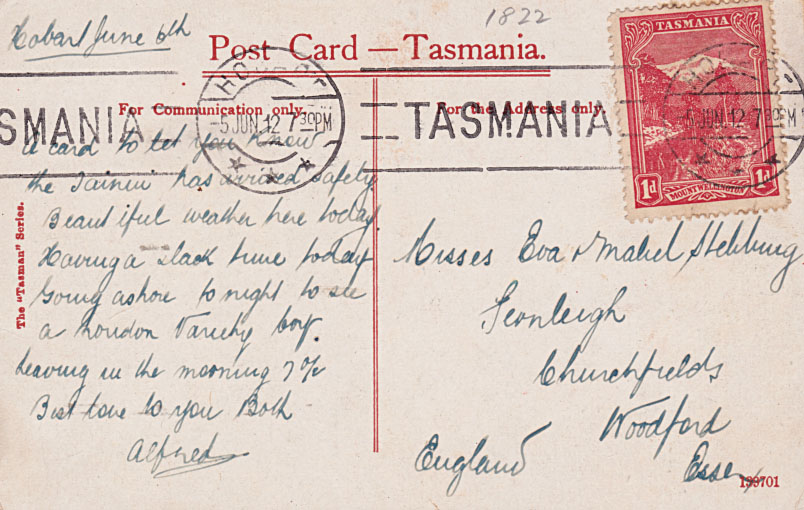 Hobart June 6th
1822
Post Card — Tasmania.
For Communication only.
For the Address only.
HOBART
5 JUN. 12 7 30 PM
TASMANIA
SMANIA
TASMANIA
MOUNT WELLINGTON
1d 1d
5 JUN. 12 7 30 PM
A card to let you know
the Tainui has arrived safely
Beautiful weather here today
Having a slack time today
Going ashore to night to see
a London Variety Coy.
Leaving in the morning 7 o/c
Best love to you Both
Alfred
The "Tasman" Series.
Misses Eva & Mabel Stebbing
Churchfields
Woodford
Essex
England
139701